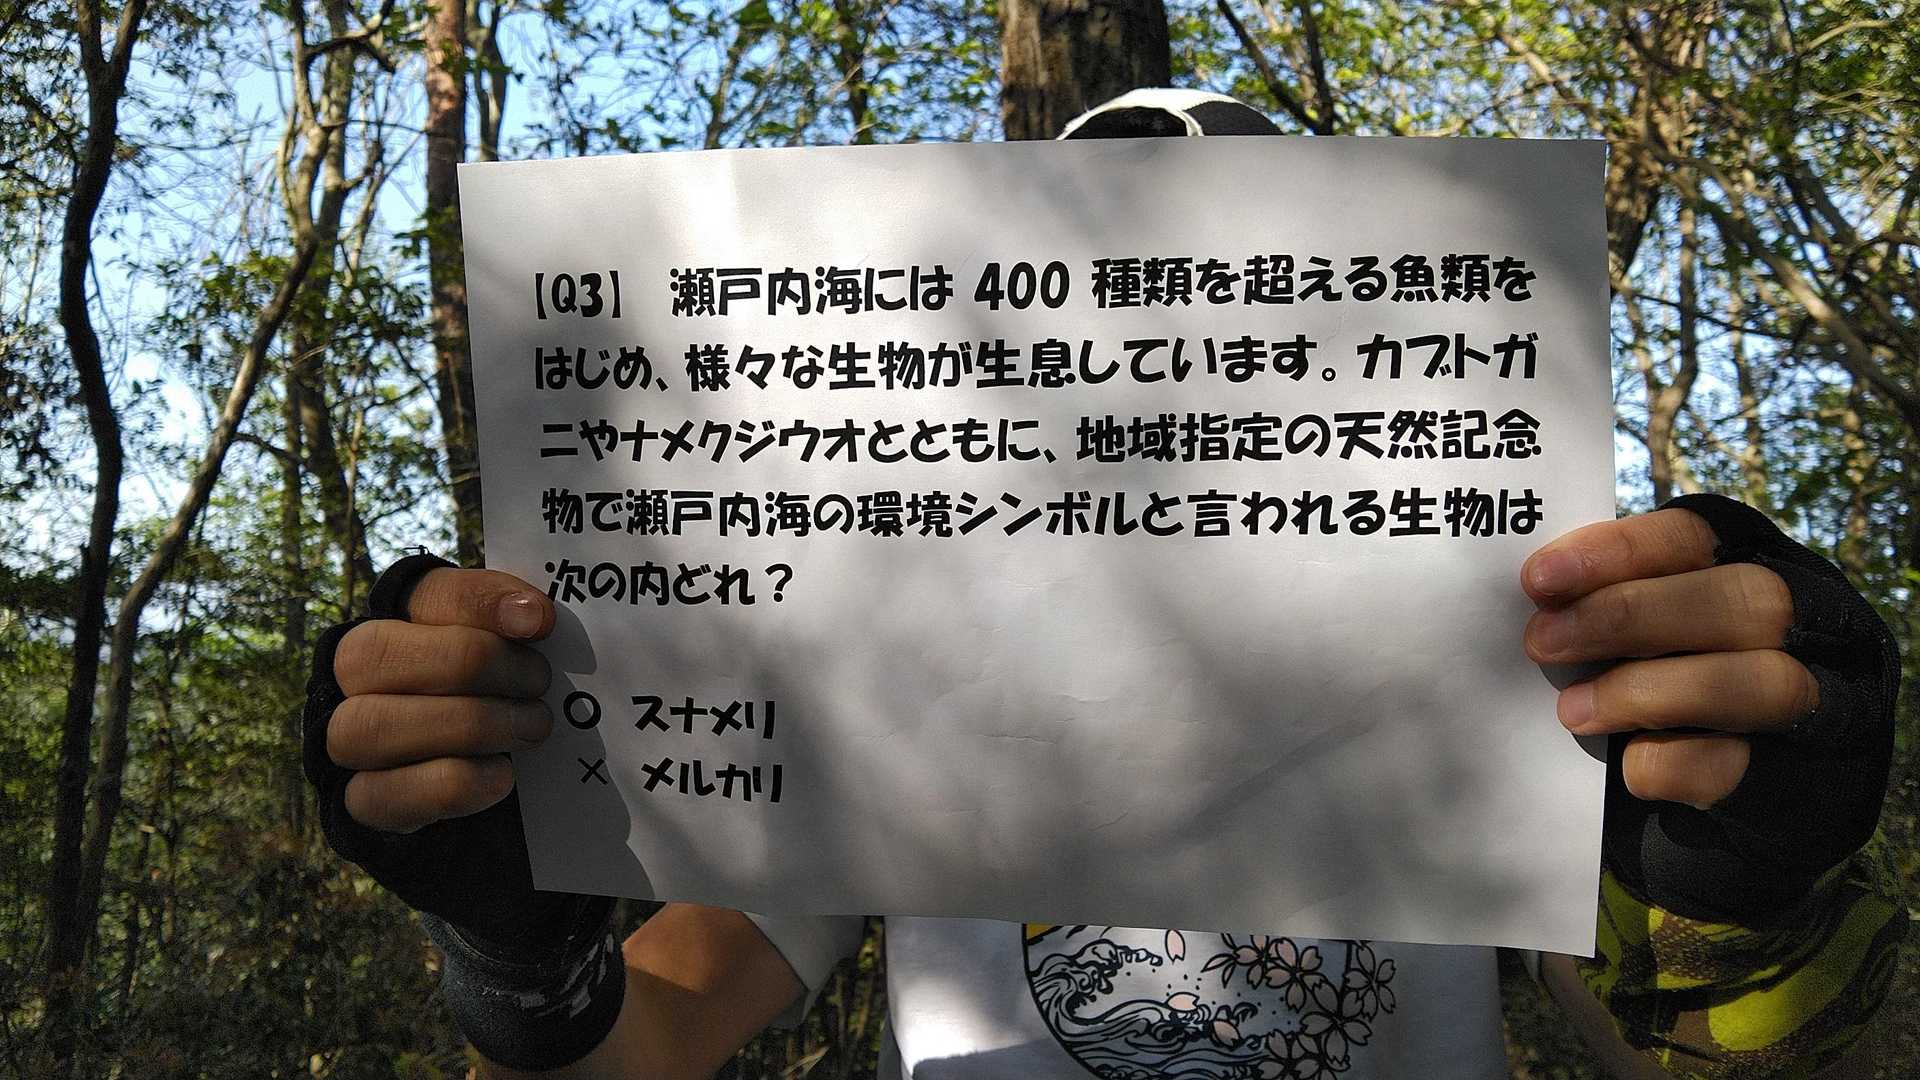 【Q3】 瀬戸内海には 400 種類を超える魚類を
はじめ、様々な生物が生息しています。カブトガ
ニやナメクジウオとともに、地域指定の天然記念
物で瀬戸内海の環境シンボルと言われる生物は
次の内どれ？
○ スナメリ
× メルカリ